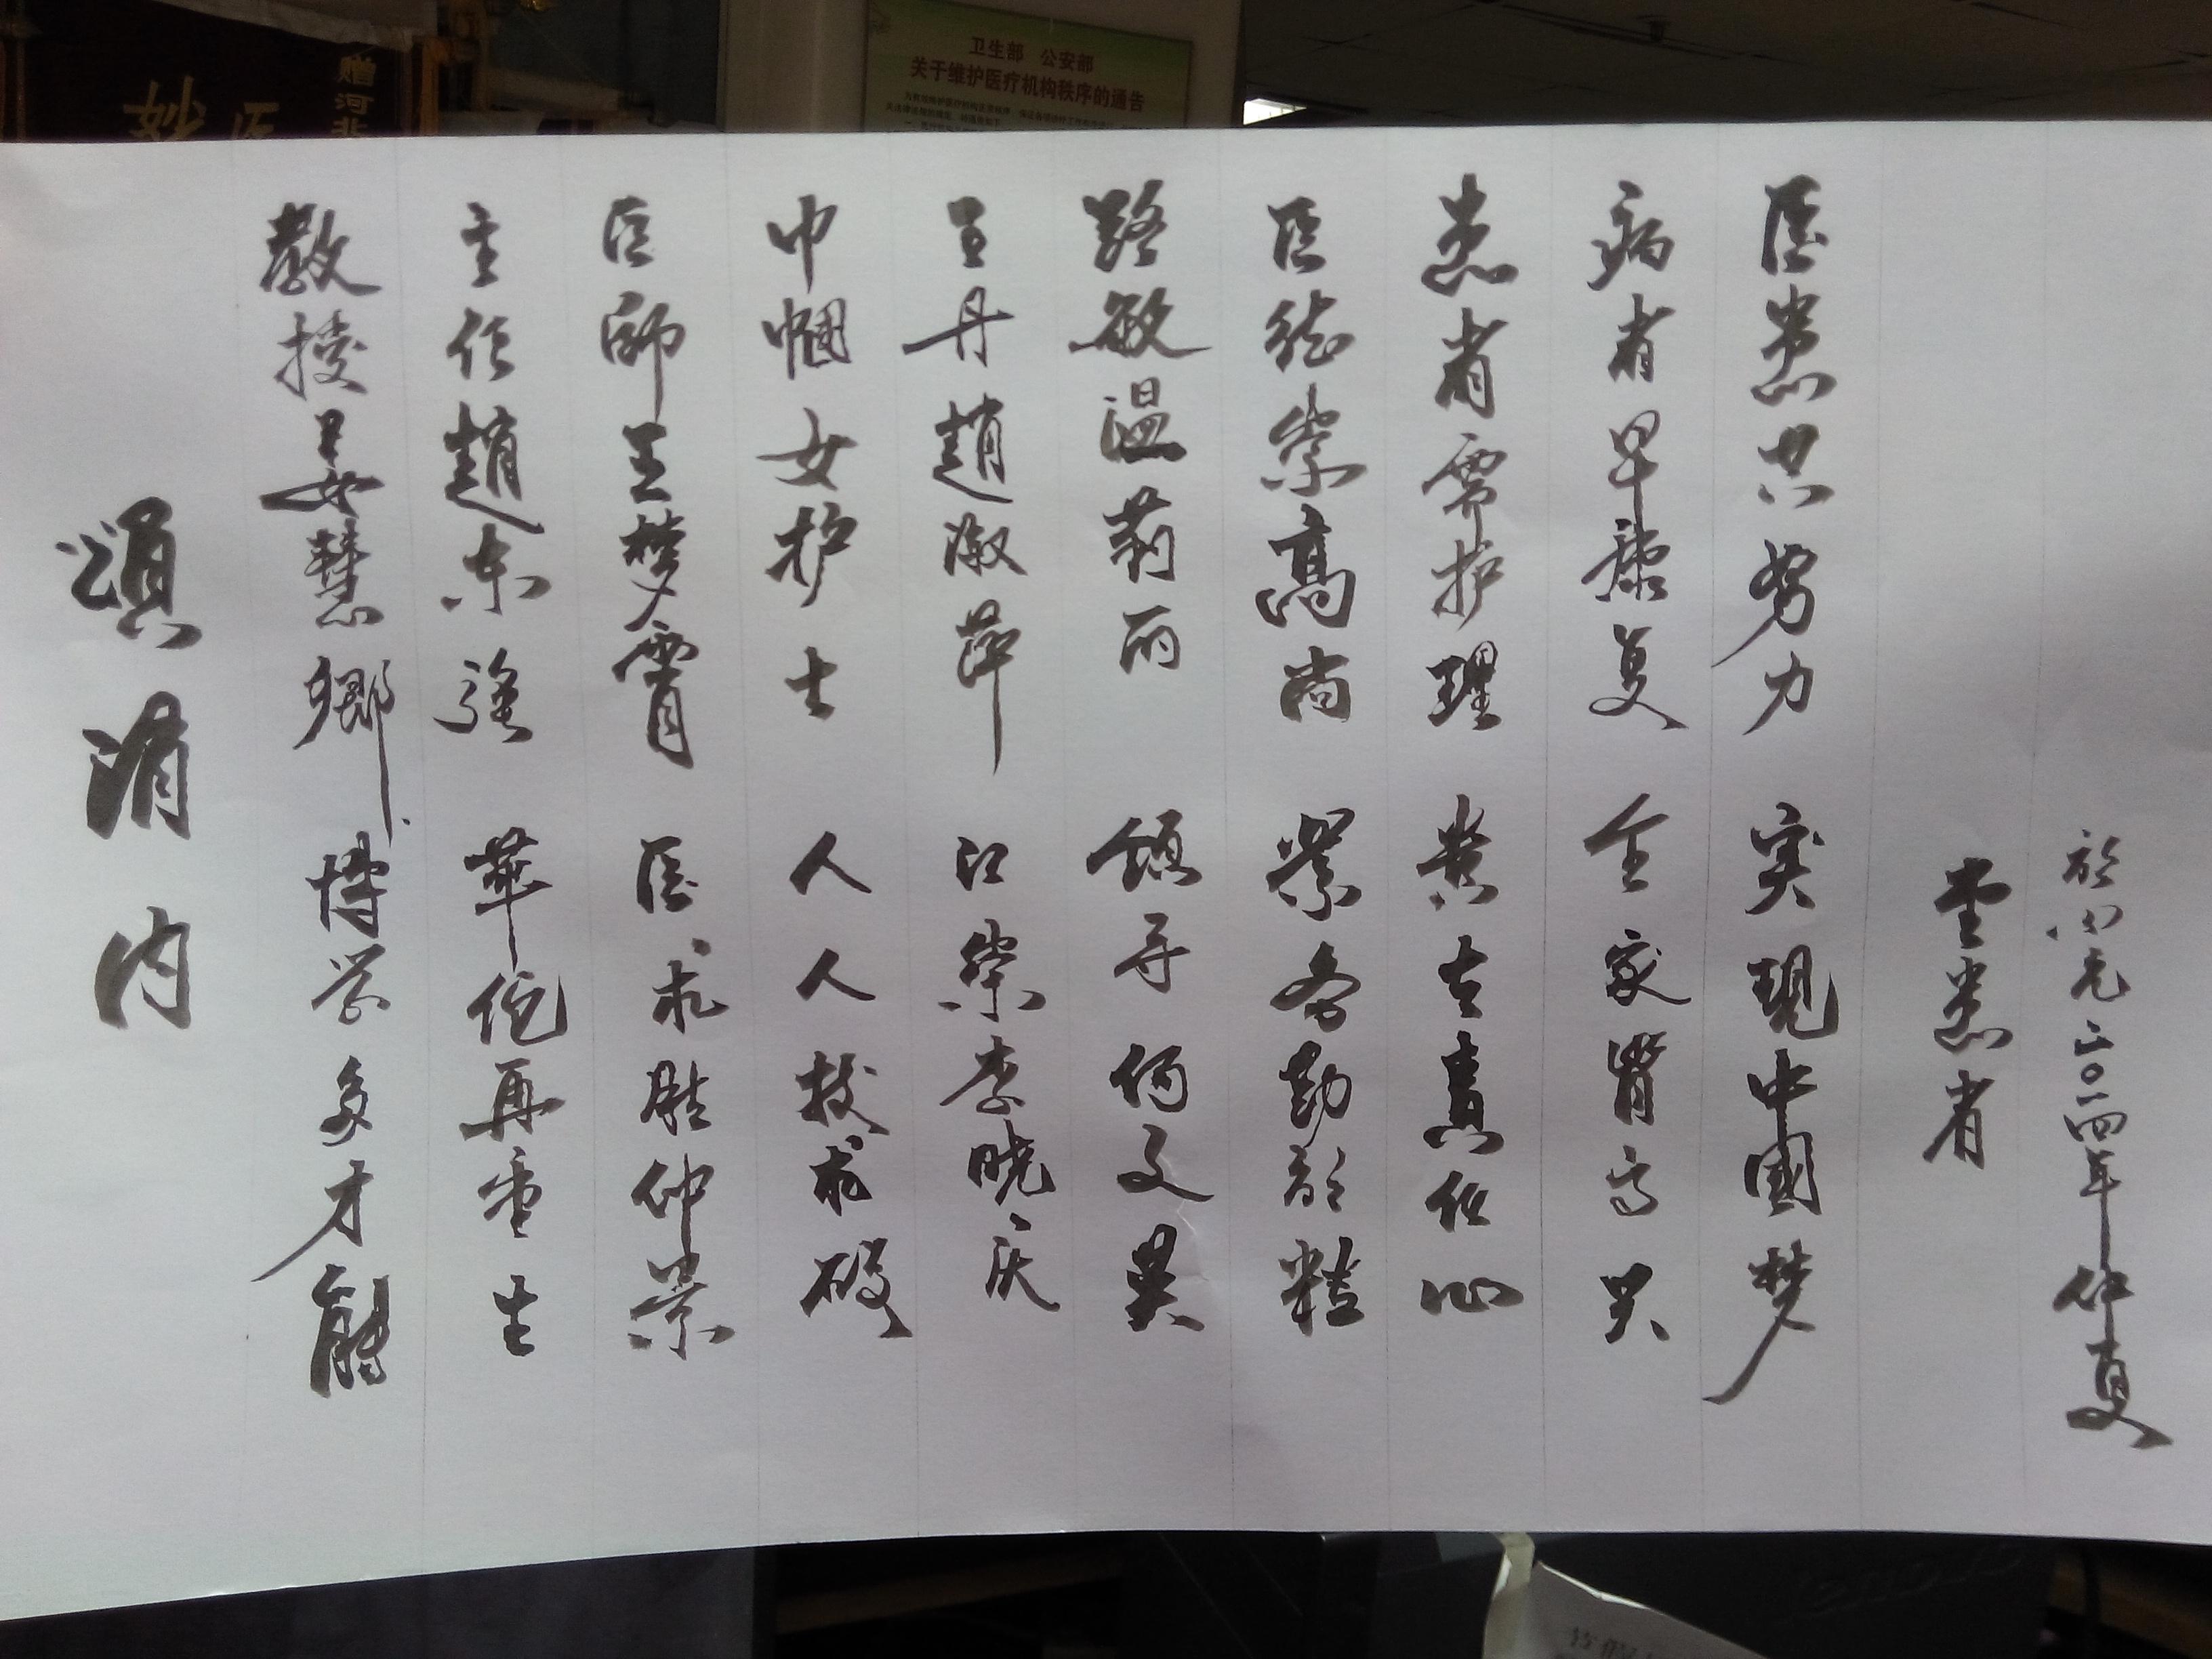 卫生部 公安部
关于维护医疗机构秩序的通告
赠河北
妙医
頌消内
教授姜慧卿 博学多才能
主任趙东強 華佗再重生
医師王梦霄 医术胜仲景
巾帼女护士 人人技术硬
王丹趙淑萍 江崇李晓庆
路敏温莉丽 領导何文昊
医德崇高尚 業务勤精
患者需护理 贵在责任心
病者早康复 全家皆高兴
医患共努力 实现中國梦
患者
於公元二〇一四年仲夏